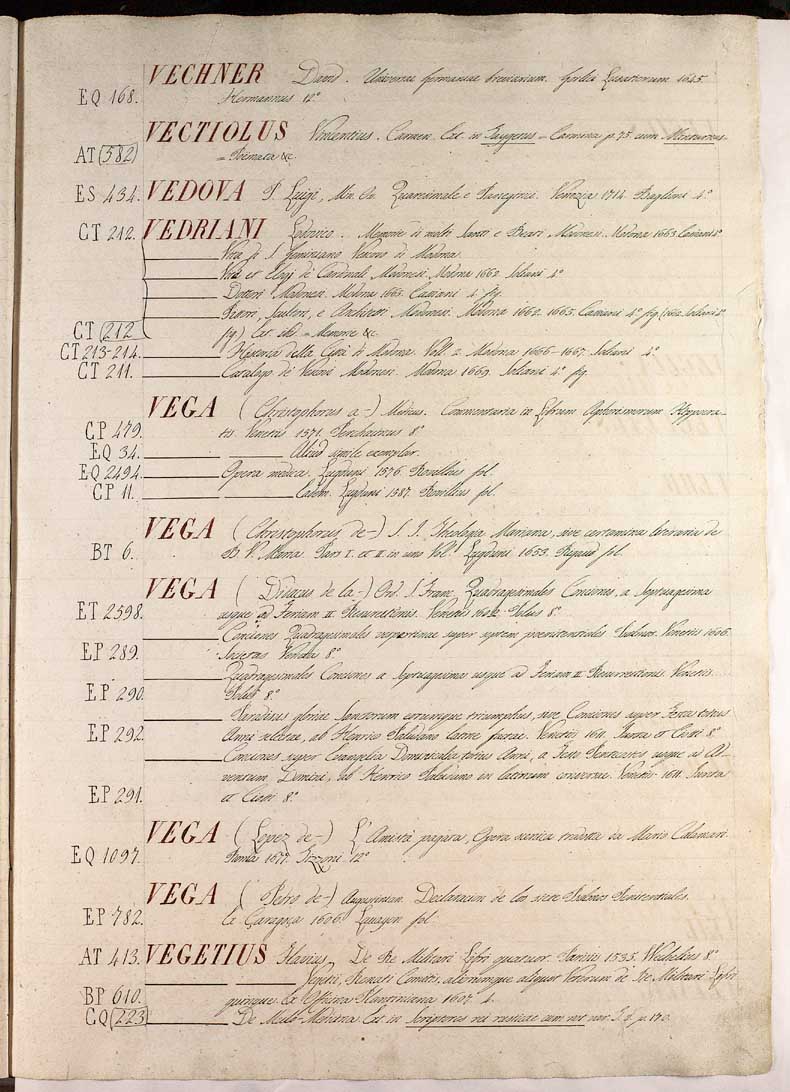 VECHNER David. Universae Germaniae breviarium. Gorlici 1645.
EQ 168. Hermannus 12°
VECTIOLUS Vincentius. Carmen. Ext. in Carmina p. 75 cum
AT (582) = Poëmata &c.
ES 434. VEDOVA P. Luigi, Min. Quaresimale e Panegirici. Venezia 1714. Baglioni 4°
CT 212. VEDRIANI Lodovico. Memorie di molti Santi e Beati Modonesi. Modona 1663. Cassiani 4°
Vita di S. Geminiano Vescovo di Modona
Vite et Elogi de Cardinali Modonesi. Modona 1662. Soliani 4°
Dottori Modonesi. Modona 1665. Cassiani 4° fig.
Pittori, Scultori, e Architetti Modonesi. Modona 1662. Cassiani 4° fig. (1662. Soliani 4°
CT (212 fig.) Ext. = Memorie &c.
CT 213-214. Historia della Città di Modona. Voll. 2. Modona 1666-1667. Soliani 4°
CT 211. Catalogo de Vescovi Modonesi. Modona 1669. Soliani 4° fig.
VEGA (Christophorus a-) Medicus. Commentaria in Librum Aphorismorum Hippocra-
CP 479. tis. Venetiis 1571. 8°
EQ 34. Aliud simile exemplar.
EQ 2494. Opera medica. Lugduni 1576. Rovillius fol.
CP 11. Eadem. Lugduni 1587. Rovillius fol.
VEGA (Christophorus de-) S. J. Theologia Mariana, sive certamina literaria de
BT 6. B. V. Maria. Pars I. et II. in uno Vol. Lugduni 1653. fol.
VEGA (Didacus de la-) Ord. S. Franc. Quadragesimales Conciones, a Septuagesima
ET 2598. usque ad Feriam II. Resurrectionis. Venetiis 1602. 8°
Conciones Quadragesimales vespertinae super septem poenitentiales Psalmos. Venetiis 1606.
EP 289. 8°
Quadragesimales Conciones a Septuagesima usque ad Feriam II. Resurrectionis. Venetiis
EP 290. 8°
Paradisus gloriae Sanctorum eorumque triumphus, sive Conciones super Festa totius
EP 292. Anni selectae, ab Henrico latine factae. Venetiis 1611. Iunta et Ciotti 8°
Conciones super Evangelia Dominicalia totius Anni, a Festo Pentecostes usque ad Ad-
ventum Domini, ab Henrico in latinum conversae. Venetiis 1611. Iunta
EP 291. et Ciotti 8°
VEGA (Lopez de-) L'Amistà pagata, Opera scenica tradotta da Mario Calamari.
EQ 1097. 1677. 12°
VEGA (Pedro de-) Augustinian. Declaracion de los siete Psalmos Penitentiales.
EP 782. Çaragoça 1606. fol.
AT 413. VEGETIUS Flavius, De Re Militari Libri quatuor. Parisiis 1535. Wechelius 8°
Vegetii, Renati Comitis, aliorumque aliquot Veterum de Re Militari Libri
BP 610. quinque. Ex Officina Plantiniana 1607. 4.
CQ (223) De Mulo-Medicina. Ext. in Scriptores rei rusticae cum not. var. p. 170.